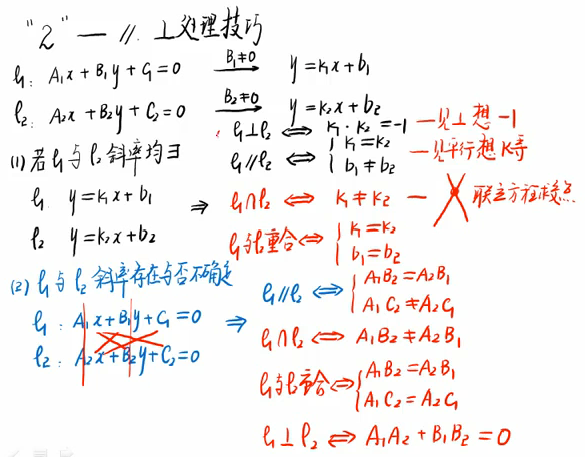 "2" — ∥. ⊥处理技巧
l₁: A₁x + B₁y + C₁ = 0 —B₁≠0→ y = k₁x + b₁
l₂: A₂x + B₂y + C₂ = 0 —B₂≠0→ y = k₂x + b₂
(1) 若l₁与l₂斜率均∃
l₁ y = k₁x + b₁
l₂ y = k₂x + b₂
⇒
l₁⊥l₂ ⇔ k₁·k₂ = -1 —见⊥想-1
l₁∥l₂ ⇔ { k₁ = k₂ —见平行想k等
b₁ ≠ b₂
l₁∩l₂ ⇔ k₁ ≠ k₂ — 联立方程找交点
l₁与l₂重合 ⇔ { k₁ = k₂
b₁ = b₂
(2) l₁与l₂斜率存在与否不确定
l₁: A₁x + B₁y + C₁ = 0 ⇒
l₂: A₂x + B₂y + C₂ = 0
l₁∥l₂ ⇔ { A₁B₂ = A₂B₁
A₁C₂ ≠ A₂C₁
l₁∩l₂ ⇔ A₁B₂ ≠ A₂B₁
l₁与l₂重合 ⇔ { A₁B₂ = A₂B₁
A₁C₂ = A₂C₁
l₁⊥l₂ ⇔ A₁A₂ + B₁B₂ = 0